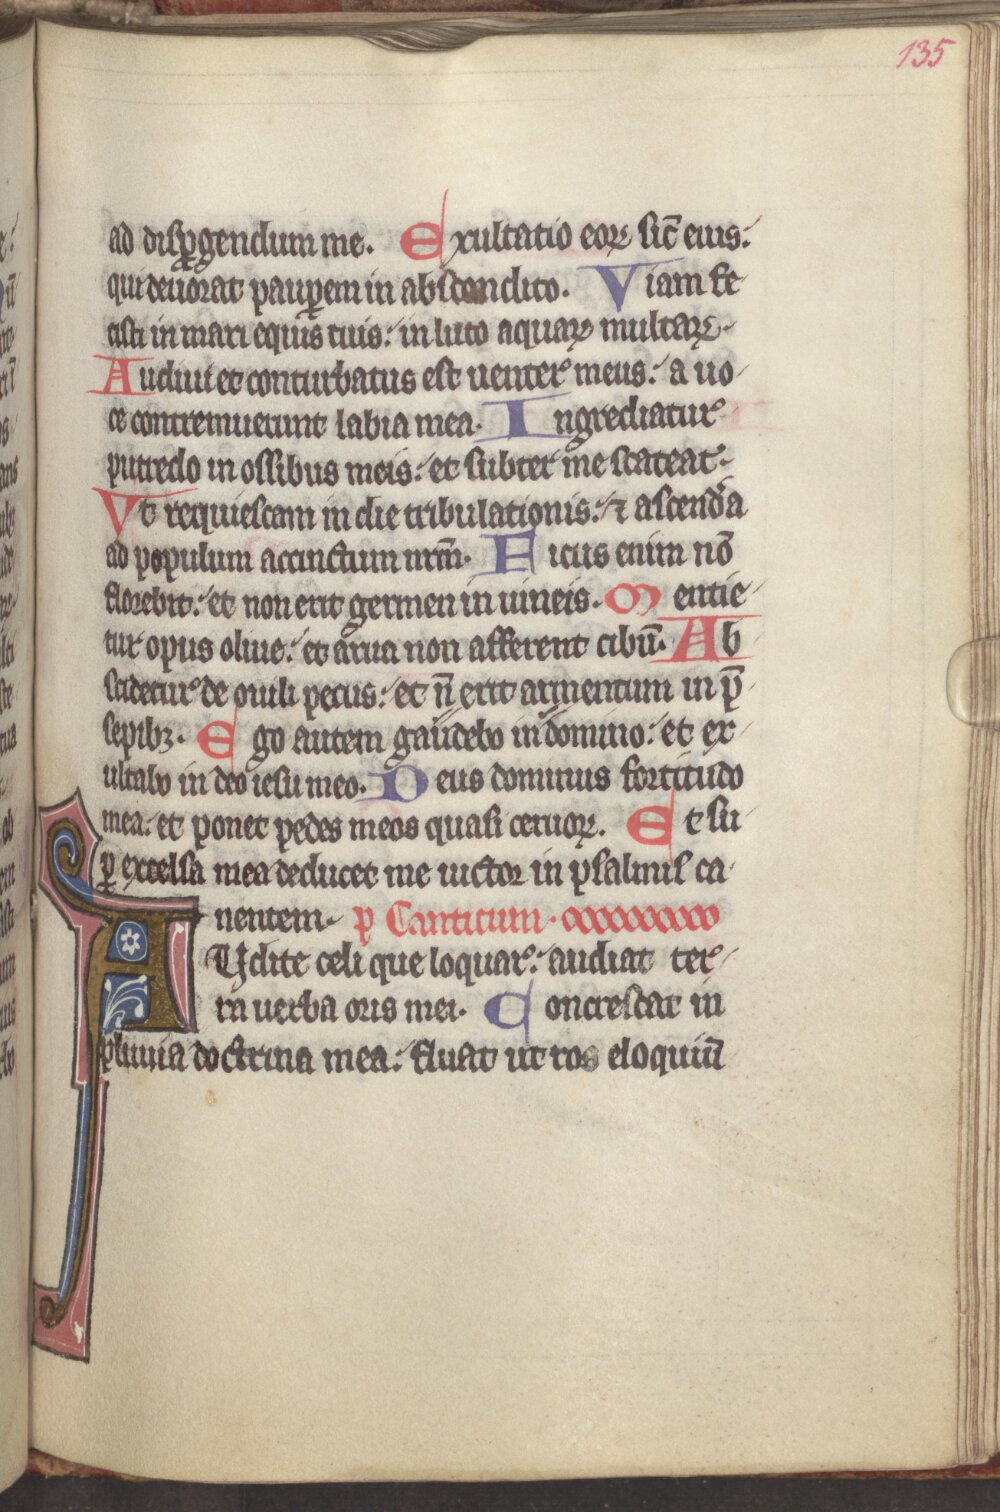 135
ad disꝑgendum me. Exultatio eoꝝ sic̄ eius:
qui deuorat pauꝑem in abscondito. Viam fe
cisti in mari equis tuis: in luto aquaꝝ multaꝝ.
Audiui et conturbatus est uenter meus: a uo
ce contremuerunt labia mea. Ingrediatur
putredo in ossibus meis: et subter me scateat.
Vt requiescam in die tribulationis: ⁊ ascendā
ad populum accinctum nr̄m. Ficus enim nō
florebit: et non erit germen in uineis. Mentie
tur opus oliue: et arua non afferent cibū. Ab
scidetur de ouili pecus: et n̄ erit armentum in p̄
sepibꝫ. Ego autem gaudebo in domino: et ex
ultabo in deo iesu meo. Deus dominus fortitudo
mea: et ponet pedes meos quasi ceruoꝝ. Et su
ꝑ excelsa mea deducet me uictor in psalmis ca
nentem. p Canticum.
AUdite celi que loquar: audiat ter
ra uerba oris mei. Concrescat in
pluuia doctrina mea: fluat ut ros eloquiū